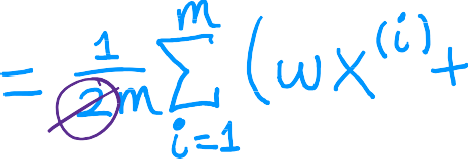 = \frac{1}{2m} \sum_{i=1}^{m} (wx^{(i)} +